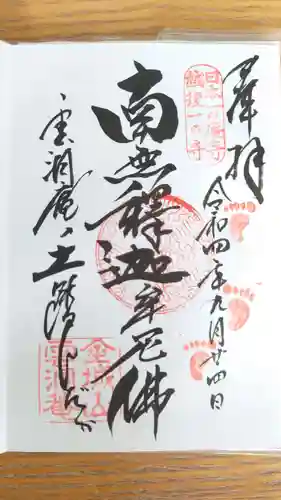 奉拝
日本一の庵寺
越後一の寺
令和四年九月廿四日
南無釋迦牟尼佛
雲洞庵
土踏
金城山
雲洞庵